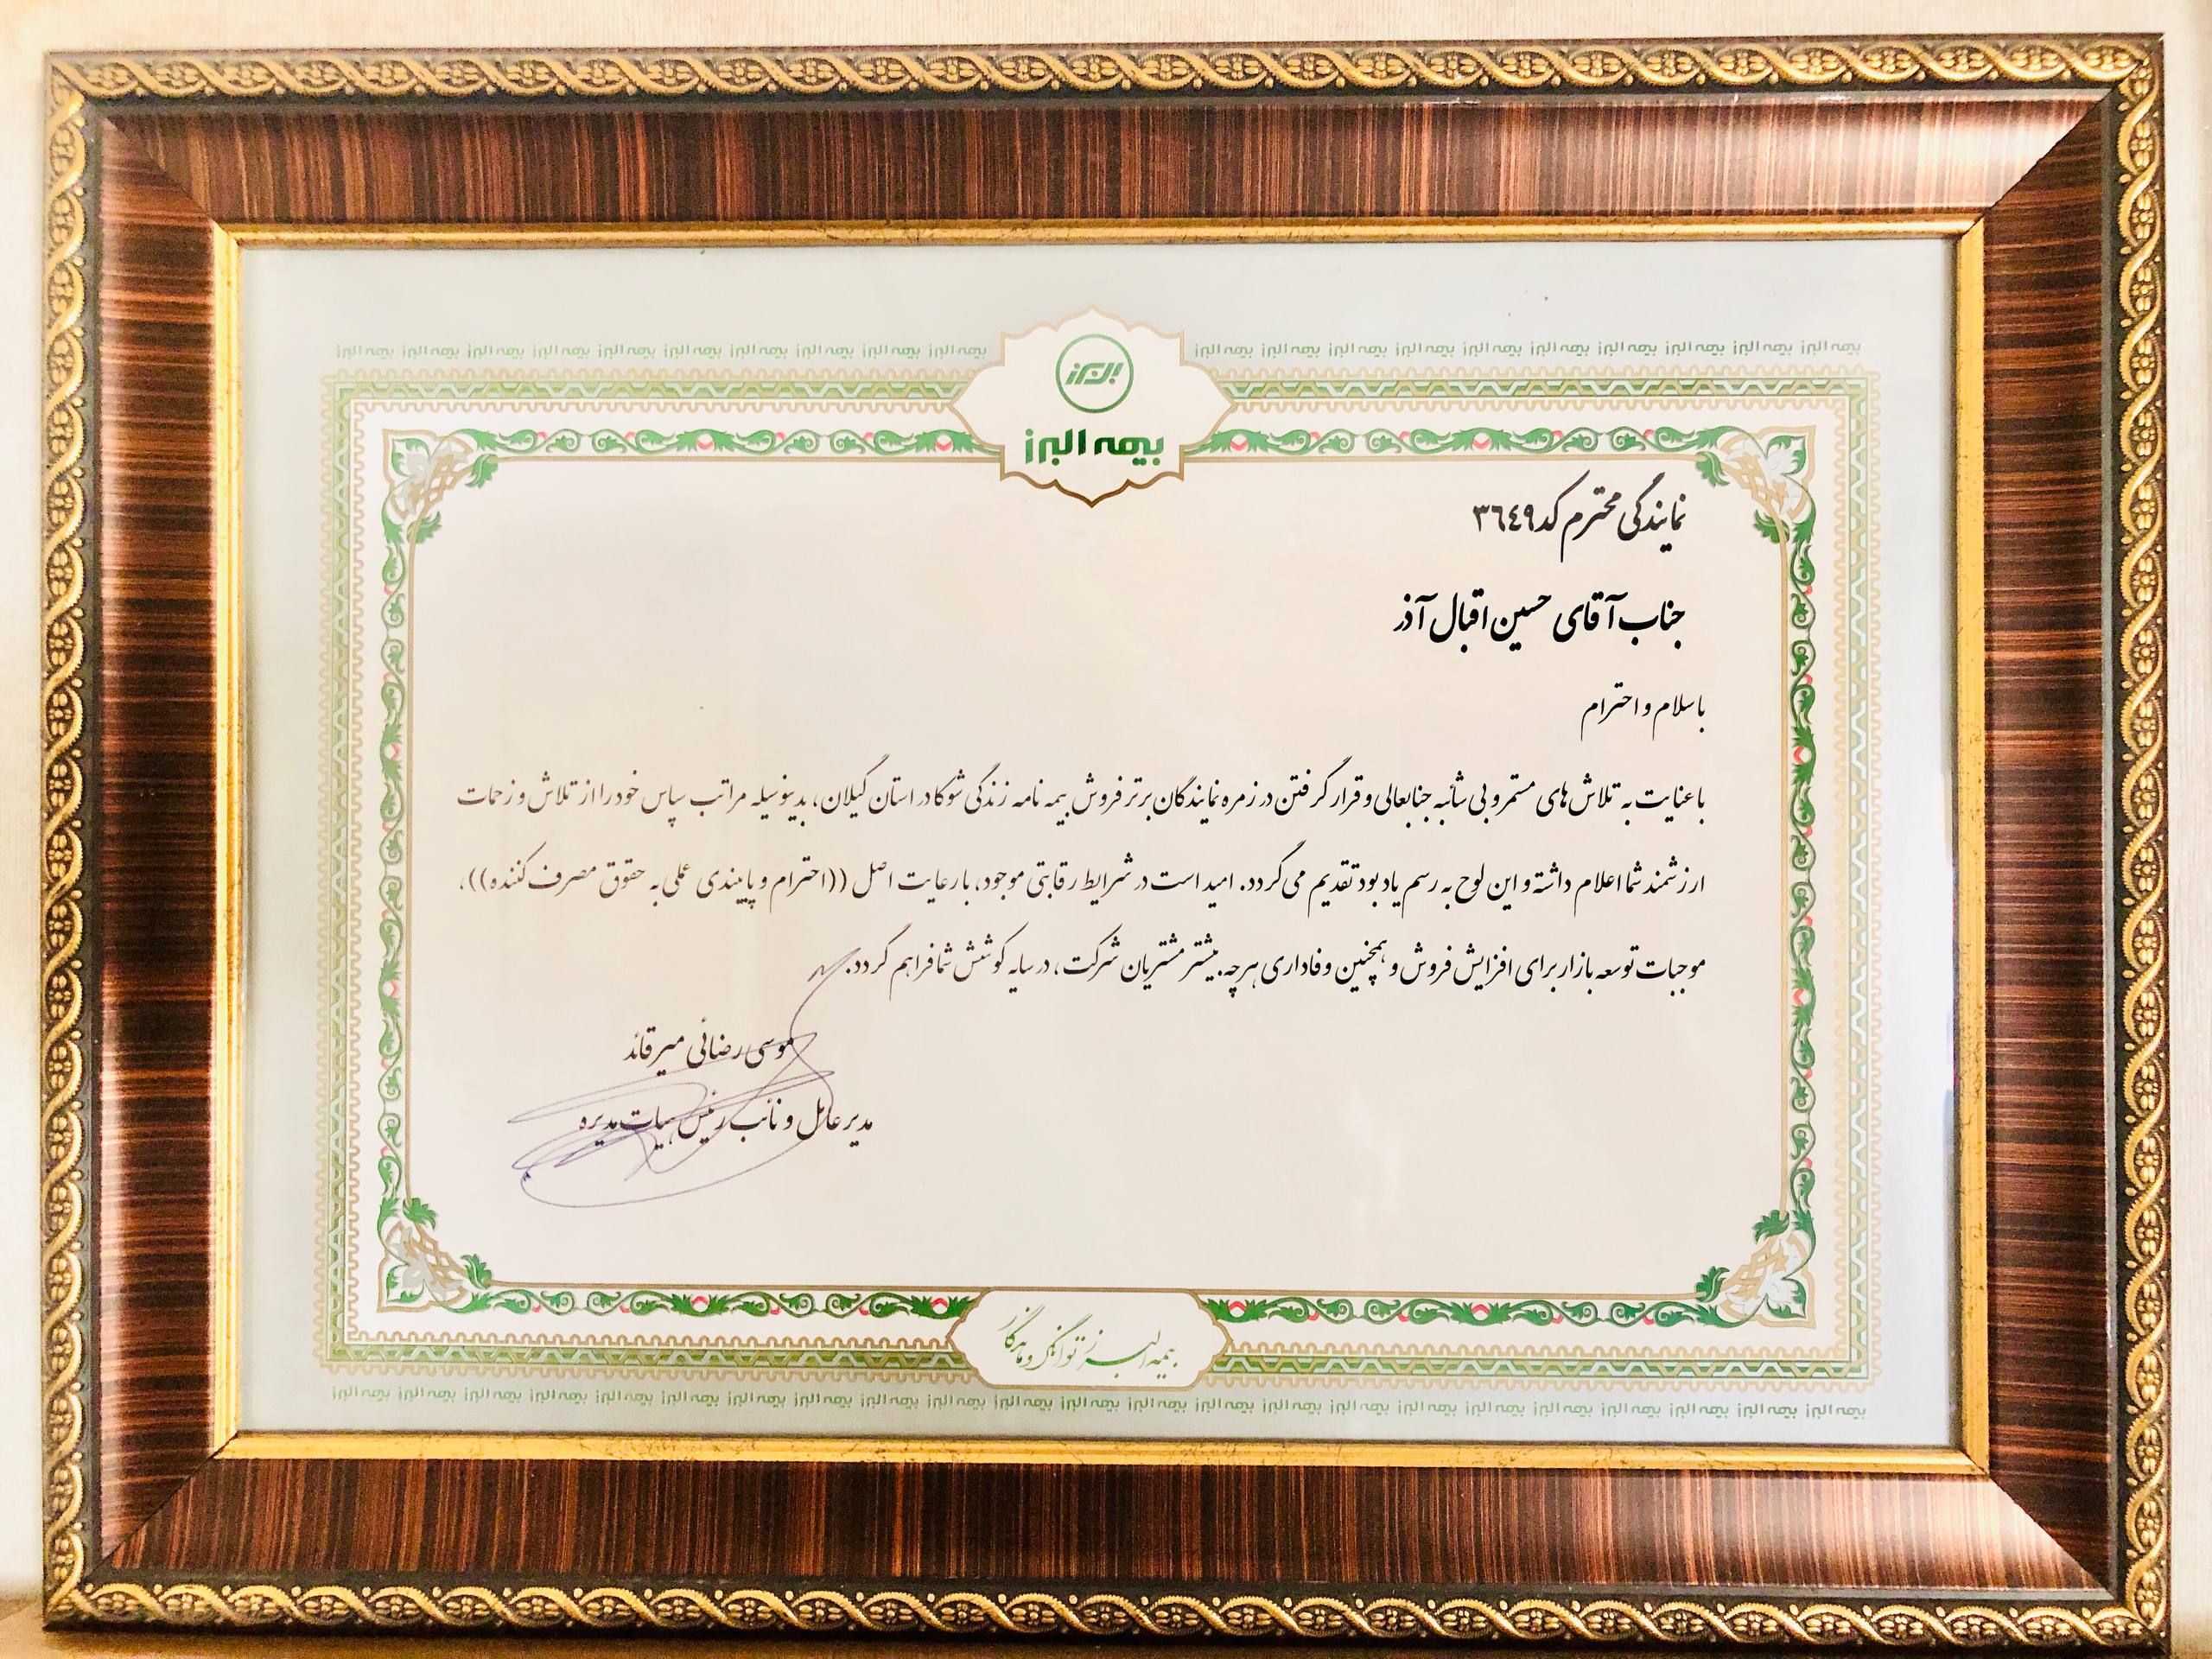 بیمه البرز بیمه البرز بیمه البرز بیمه البرز بیمه البرز بیمه البرز بیمه البرز بیمه البرز بیمه البرز بیمه البرز بیمه البرز بیمه البرز بیمه البرز بیمه البرز بیمه البرز بیمه البرز بیمه البرز بیمه البرز بیمه البرز بیمه البرز
البرز
بیمه البرز
نمایندگی محترم کد ۳۶۴۹
جناب آقای حسین اقبال آذر
با سلام و احترام
با عنایت به تلاش های مستمر و بی شائبه جنابعالی و قرار گرفتن در زمره نمایندگان برتر فروش بیمه نامه زندگی شوکا در استان گیلان، بدینوسیله مراتب سپاس خود را از تلاش و زحمات
ارزشمند شما اعلام داشته و این لوح به رسم یادبود تقدیم می گردد. امید است در شرایط رقابتی موجود، با رعایت اصل ((احترام و پایبندی عملی به حقوق مصرف کننده))،
موجبات توسعه بازار برای افزایش فروش و همچنین وفاداری هرچه بیشتر مشتریان شرکت، در سایه کوشش شما فراهم گردد.
موسی رضائی میرقائد
مدیر عامل و نائب رئیس هیات مدیره
بیمه البرز توانگر و ماندگار
بیمه البرز بیمه البرز بیمه البرز بیمه البرز بیمه البرز بیمه البرز بیمه البرز بیمه البرز بیمه البرز بیمه البرز بیمه البرز بیمه البرز بیمه البرز بیمه البرز بیمه البرز بیمه البرز بیمه البرز بیمه البرز بیمه البرز بیمه البرز بیمه البرز بیمه البرز بیمه البرز